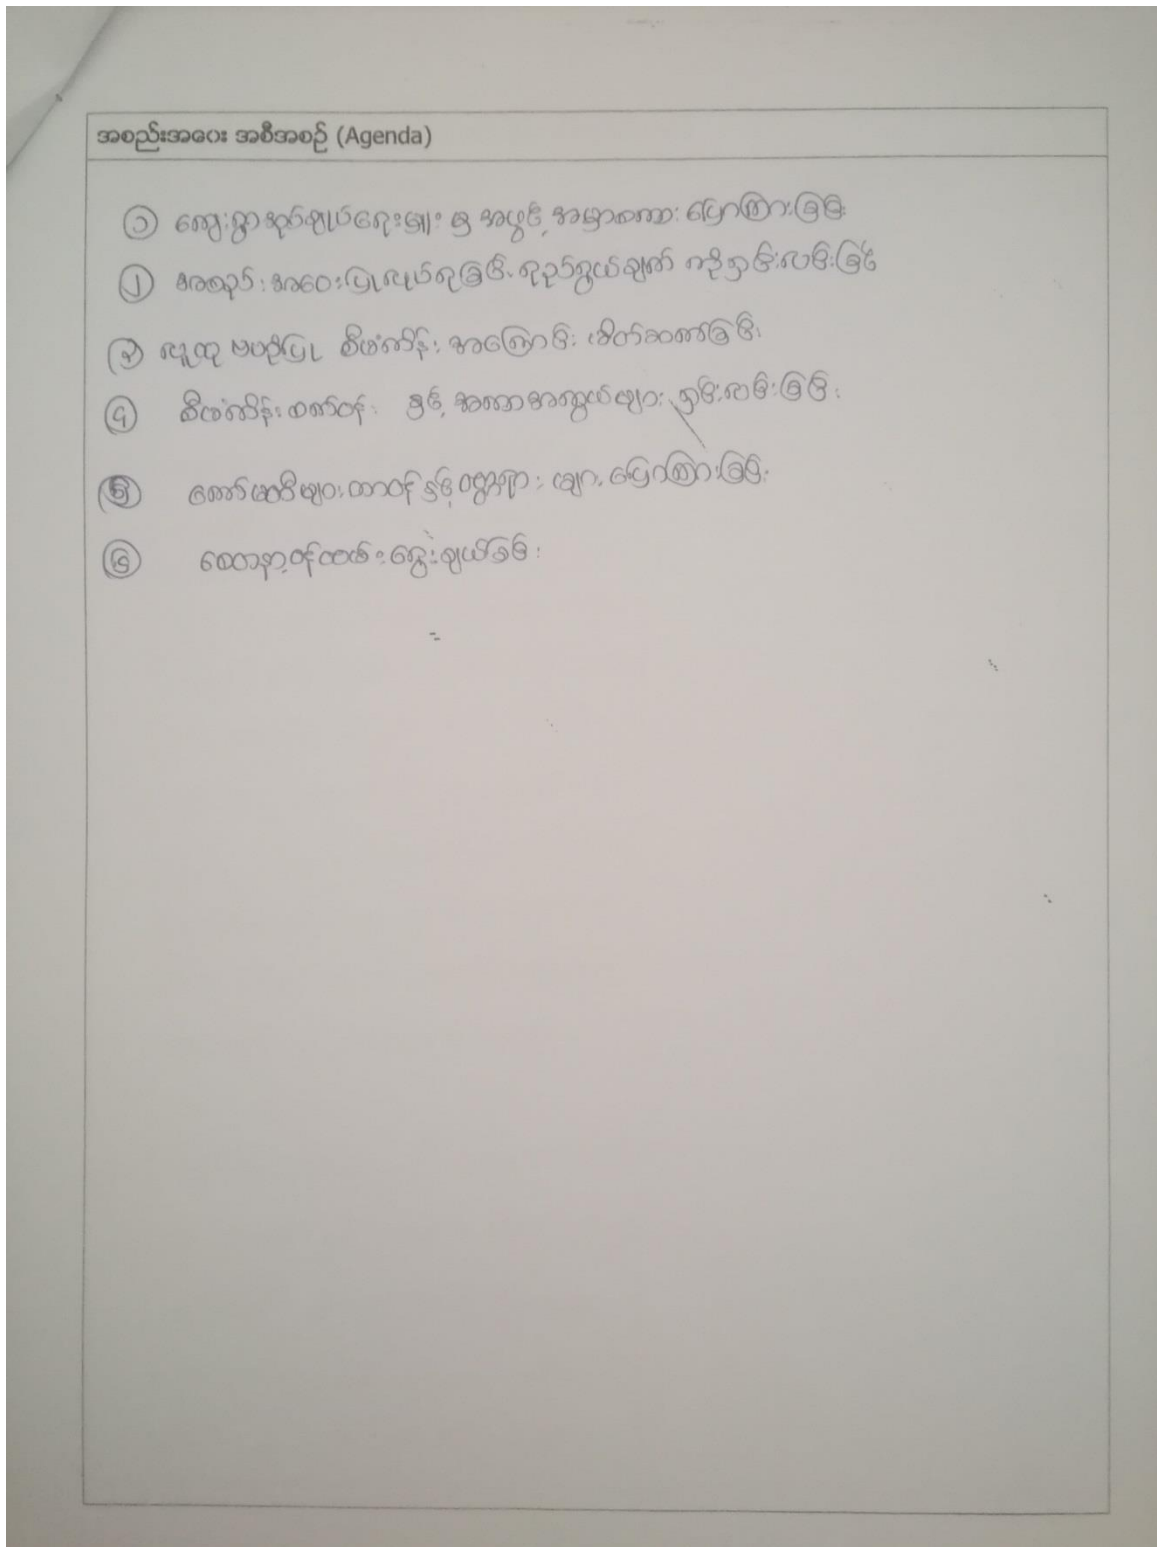 အစည်းအဝေး အစီအစဉ် (Agenda)
၁ ကျေးရွာအုပ်ချုပ်ရေးမှူး မှ အဖွင့် အမှာစကား ပြောကြားခြင်း
၂ အစည်းအဝေးပြုလုပ်ရခြင်း ရည်ရွယ်ချက် ကိုရှင်းလင်းခြင်း
၃ လူထု ဗဟိုပြု စီမံကိန်း အကြောင်း မိတ်ဆက်ခြင်း
၄ စီမံကိန်း ဝန်ထမ်း နှင့် အကာအကွယ်များ ရှင်းလင်းခြင်း
၅ ကော်မတီများ တာဝန် နှင့် ဝတ္တရား များ ပြောကြားခြင်း
၆ စေတနာ့ဝန်ထမ်း ရွေးချယ်ခြင်း